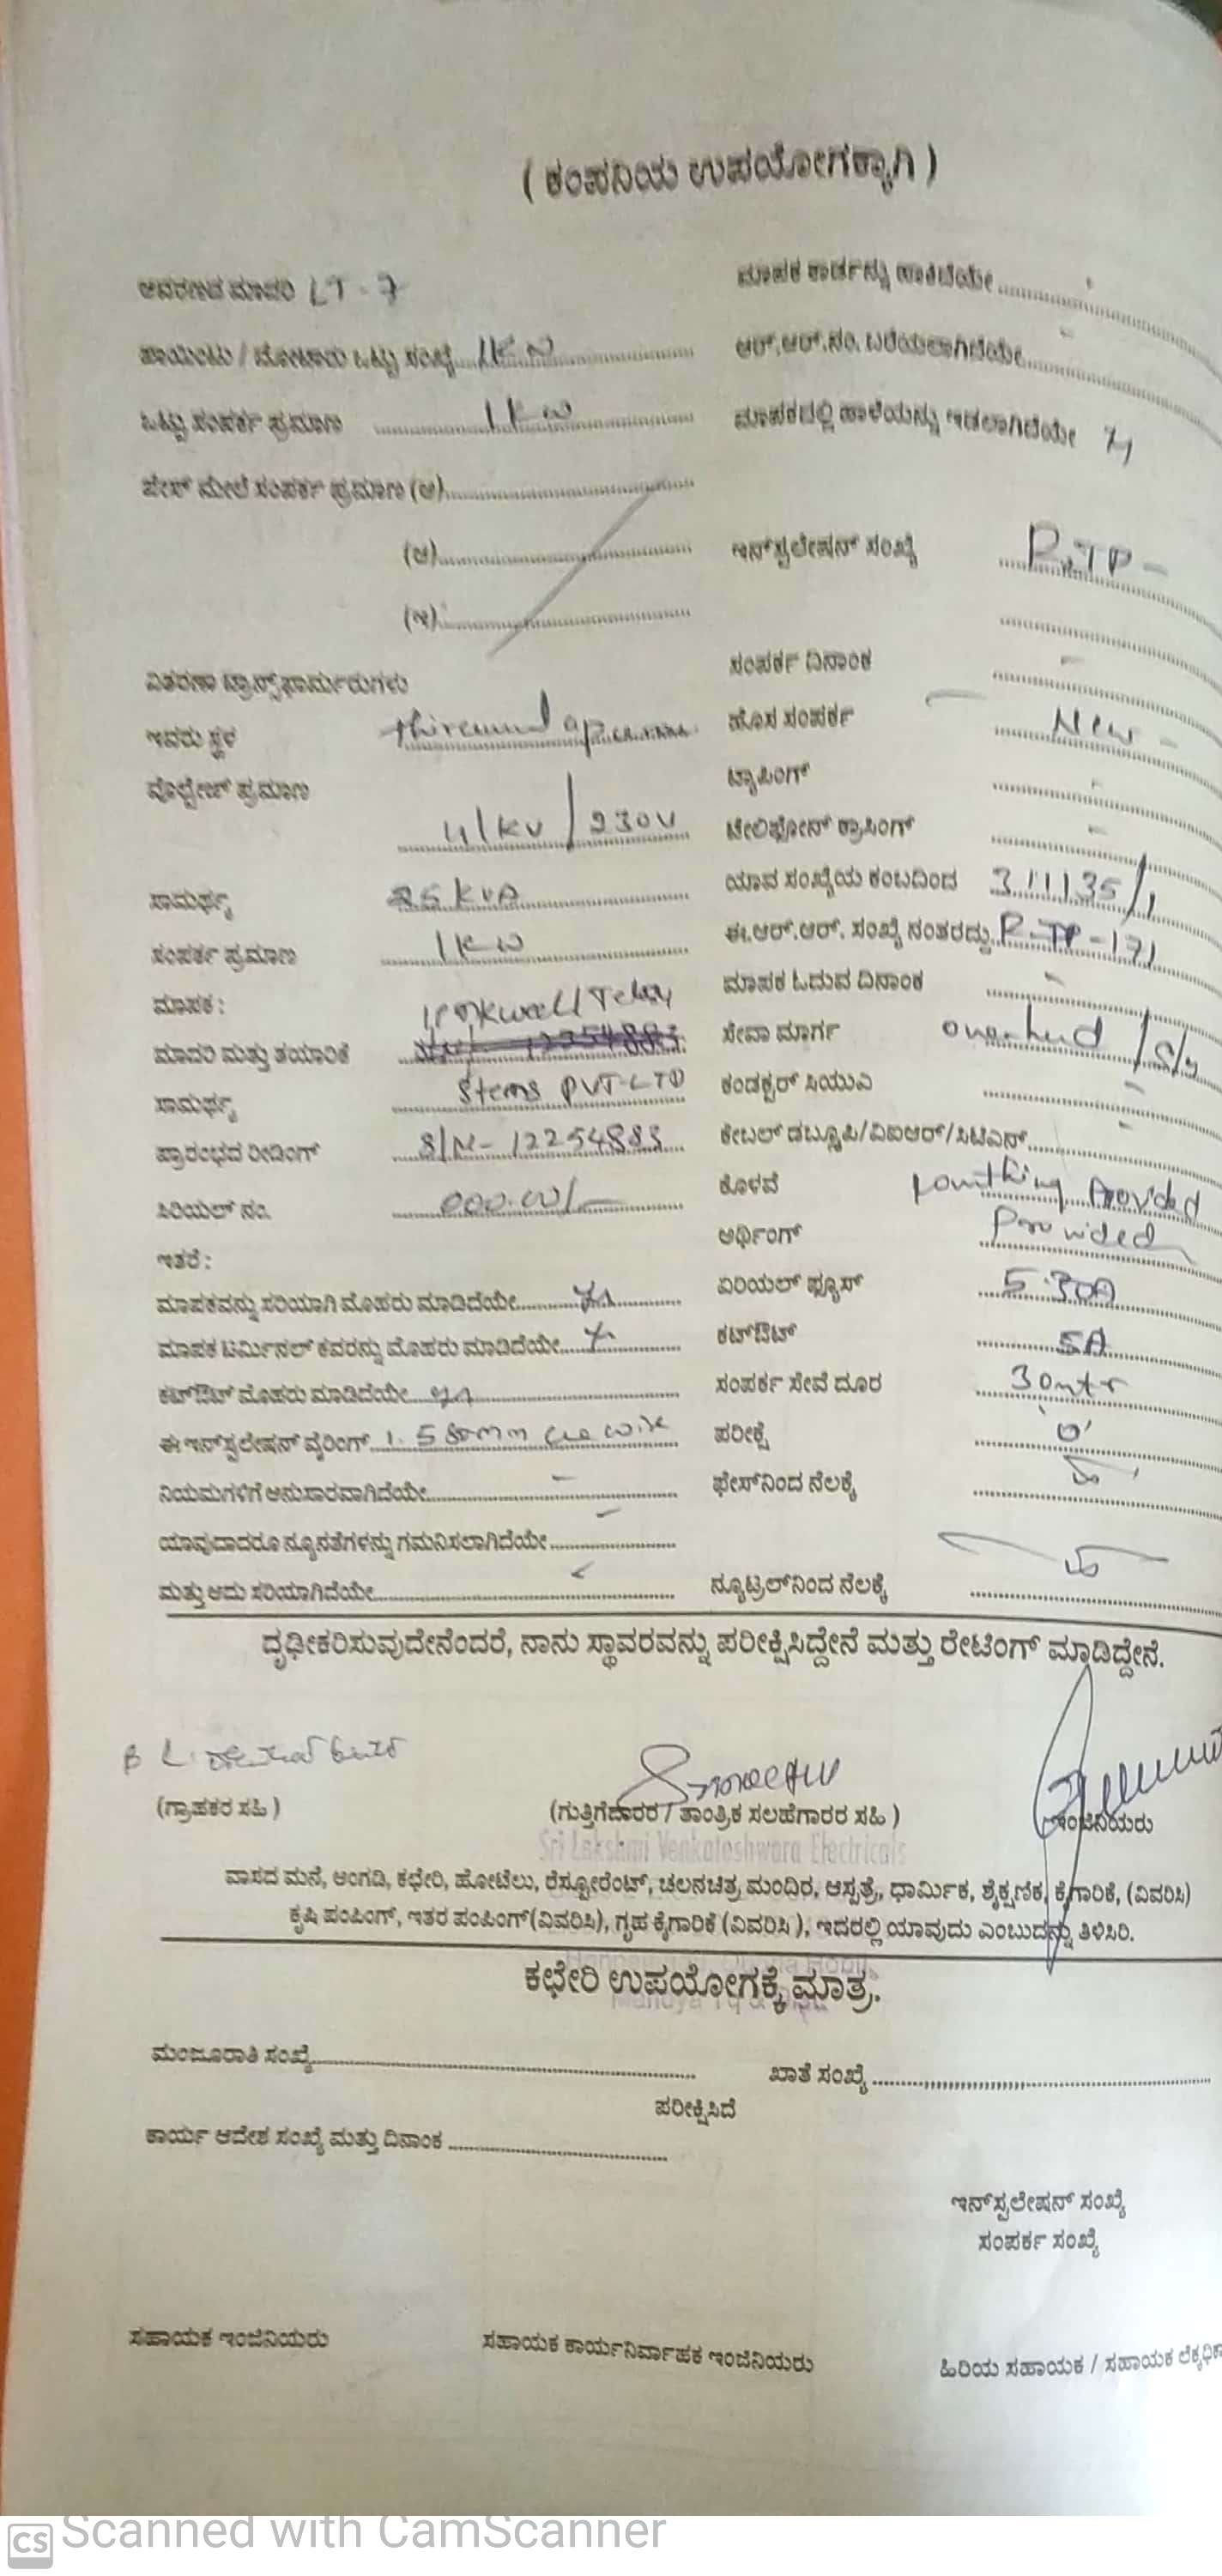 ( ಕಂಪನಿಯ ಉಪಯೋಗಕ್ಕಾಗಿ )
ಆವರಣದ ಮಾದರಿ LT-7
ಮಾಪಕ ಕಾರ್ಡನ್ನು ಹಾಕಿದೆಯೇ
ಪಾಯಿಂಟು / ಮೋಟಾರು ಒಟ್ಟು ಸಂಖ್ಯೆ 1KW
ಆರ್.ಆರ್.ನಂ. ಬರೆಯಲಾಗಿದೆಯೇ -
ಒಟ್ಟು ಸಂಪರ್ಕ ಪ್ರಮಾಣ 1KW
ಮಾಪಕದಲ್ಲಿ ಹಾಳೆಯನ್ನು ಇಡಲಾಗಿದೆಯೇ
ಫೇಸ್ ಮೇಲೆ ಸಂಪರ್ಕ ಪ್ರಮಾಣ (ಅ)
(ಆ)
ಇನ್‌ಸ್ಟಲೇಷನ್ ಸಂಖ್ಯೆ P.TP -
(ಇ)
ವಿತರಣಾ ಟ್ರಾನ್ಸ್‌ಫಾರ್ಮರುಗಳು
ಸಂಪರ್ಕ ದಿನಾಂಕ -
ಇವರು ಸ್ಥಳ
ಹೊಸ ಸಂಪರ್ಕ New -
ವೊಲ್ಟೇಜ್ ಪ್ರಮಾಣ 11KV / 230V
ಟ್ಯಾಪಿಂಗ್ -
ಟೆಲಿಫೋನ್ ಕ್ರಾಸಿಂಗ್ -
ಸಾಮರ್ಥ್ಯ 25KVA
ಯಾವ ಸಂಖ್ಯೆಯ ಕಂಬದಿಂದ
ಸಂಪರ್ಕ ಪ್ರಮಾಣ 1KW
ಈ.ಆರ್.ಆರ್. ಸಂಖ್ಯೆ ನಂತರದ್ದು P-TP-171
ಮಾಪಕ :
ಮಾಪಕ ಓದುವ ದಿನಾಂಕ -
ಮಾದರಿ ಮತ್ತು ತಯಾರಿಕೆ 12254883
ಸೇವಾ ಮಾರ್ಗ
ಸಾಮರ್ಥ್ಯ Stems PVT-LTD
ಕಂಡಕ್ಟರ್ ಸಿಯುಎ -
ಪ್ರಾರಂಭದ ರೀಡಿಂಗ್ S/N- 12254883
ಕೇಬಲ್ ಡಬ್ಲ್ಯೂಪಿ/ವಿಐಆರ್/ಸಿಟಿಎಸ್ -
ಸಿರಿಯಲ್ ನಂ. 000.00/-
ಕೊಳವೆ Provided
ಇತರೆ :
ಅರ್ಥಿಂಗ್ Provided
ಮಾಪಕವನ್ನು ಸರಿಯಾಗಿ ಮೊಹರು ಮಾಡಿದೆಯೇ
ಏರಿಯಲ್ ಫ್ಯೂಸ್ 5.30A
ಮಾಪಕ ಟರ್ಮಿನಲ್ ಕವರನ್ನು ಮೊಹರು ಮಾಡಿದೆಯೇ
ಕಟ್‌ಔಟ್ 5A
ಕಟ್‌ಔಟ್ ಮೊಹರು ಮಾಡಿದೆಯೇ
ಸಂಪರ್ಕ ಸೇವೆ ದೂರ 30mtr
ಈ ಇನ್‌ಸ್ಟಲೇಷನ್ ವೈರಿಂಗ್
ಪರೀಕ್ಷೆ '0'
ನಿಯಮಗಳಿಗೆ ಅನುಸಾರವಾಗಿದೆಯೇ -
ಫೇಸ್‌ನಿಂದ ನೆಲಕ್ಕೆ
ಯಾವುದಾದರೂ ನ್ಯೂನತೆಗಳನ್ನು ಗಮನಿಸಲಾಗಿದೆಯೇ -
ಮತ್ತು ಅದು ಸರಿಯಾಗಿದೆಯೇ
ನ್ಯೂಟ್ರಲ್‌ನಿಂದ ನೆಲಕ್ಕೆ
ದೃಢೀಕರಿಸುವುದೇನೆಂದರೆ, ನಾನು ಸ್ಥಾವರವನ್ನು ಪರೀಕ್ಷಿಸಿದ್ದೇನೆ ಮತ್ತು ರೇಟಿಂಗ್ ಮಾಡಿದ್ದೇನೆ.
(ಗ್ರಾಹಕರ ಸಹಿ )
(ಗುತ್ತಿಗೆದಾರರ / ತಾಂತ್ರಿಕ ಸಲಹೆಗಾರರ ಸಹಿ )
ಇಂಜಿನಿಯರು
Sri Lakshmi Venkateshwara Electricals
ವಾಸದ ಮನೆ, ಅಂಗಡಿ, ಕಛೇರಿ, ಹೋಟೆಲು, ರೆಸ್ಟೋರೆಂಟ್, ಚಲನಚಿತ್ರ ಮಂದಿರ, ಆಸ್ಪತ್ರೆ, ಧಾರ್ಮಿಕ, ಶೈಕ್ಷಣಿಕ, ಕೈಗಾರಿಕೆ, (ವಿವರಿಸಿ)
ಕೃಷಿ ಪಂಪಿಂಗ್, ಇತರ ಪಂಪಿಂಗ್(ವಿವರಿಸಿ), ಗೃಹ ಕೈಗಾರಿಕೆ (ವಿವರಿಸಿ ), ಇದರಲ್ಲಿ ಯಾವುದು ಎಂಬುದನ್ನು ತಿಳಿಸಿರಿ.
ಕಛೇರಿ ಉಪಯೋಗಕ್ಕೆ ಮಾತ್ರ.
ಮಂಜೂರಾತಿ ಸಂಖ್ಯೆ
ಖಾತೆ ಸಂಖ್ಯೆ
ಪರೀಕ್ಷಿಸಿದೆ
ಕಾರ್ಯ ಆದೇಶ ಸಂಖ್ಯೆ ಮತ್ತು ದಿನಾಂಕ
ಇನ್‌ಸ್ಟಲೇಷನ್ ಸಂಖ್ಯೆ
ಸಂಪರ್ಕ ಸಂಖ್ಯೆ
ಸಹಾಯಕ ಇಂಜಿನಿಯರು
ಸಹಾಯಕ ಕಾರ್ಯನಿರ್ವಾಹಕ ಇಂಜಿನಿಯರು
ಹಿರಿಯ ಸಹಾಯಕ / ಸಹಾಯಕ
CS Scanned with CamScanner